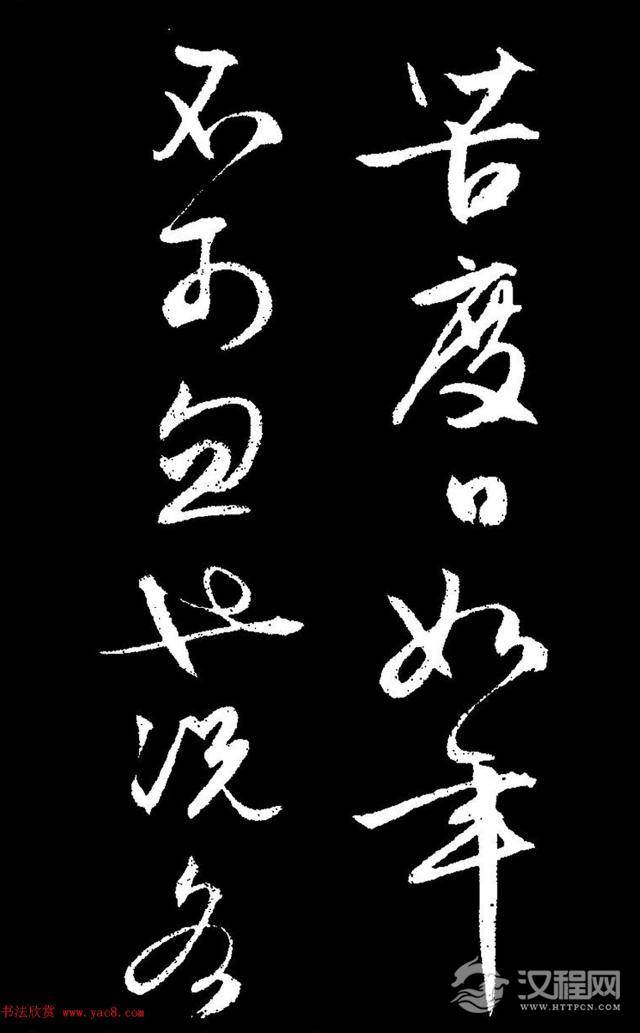 苦度日如年
不可忽也况各
书法欣赏 www.yac8.com
汉程网
WWW.HTTPCN.COM